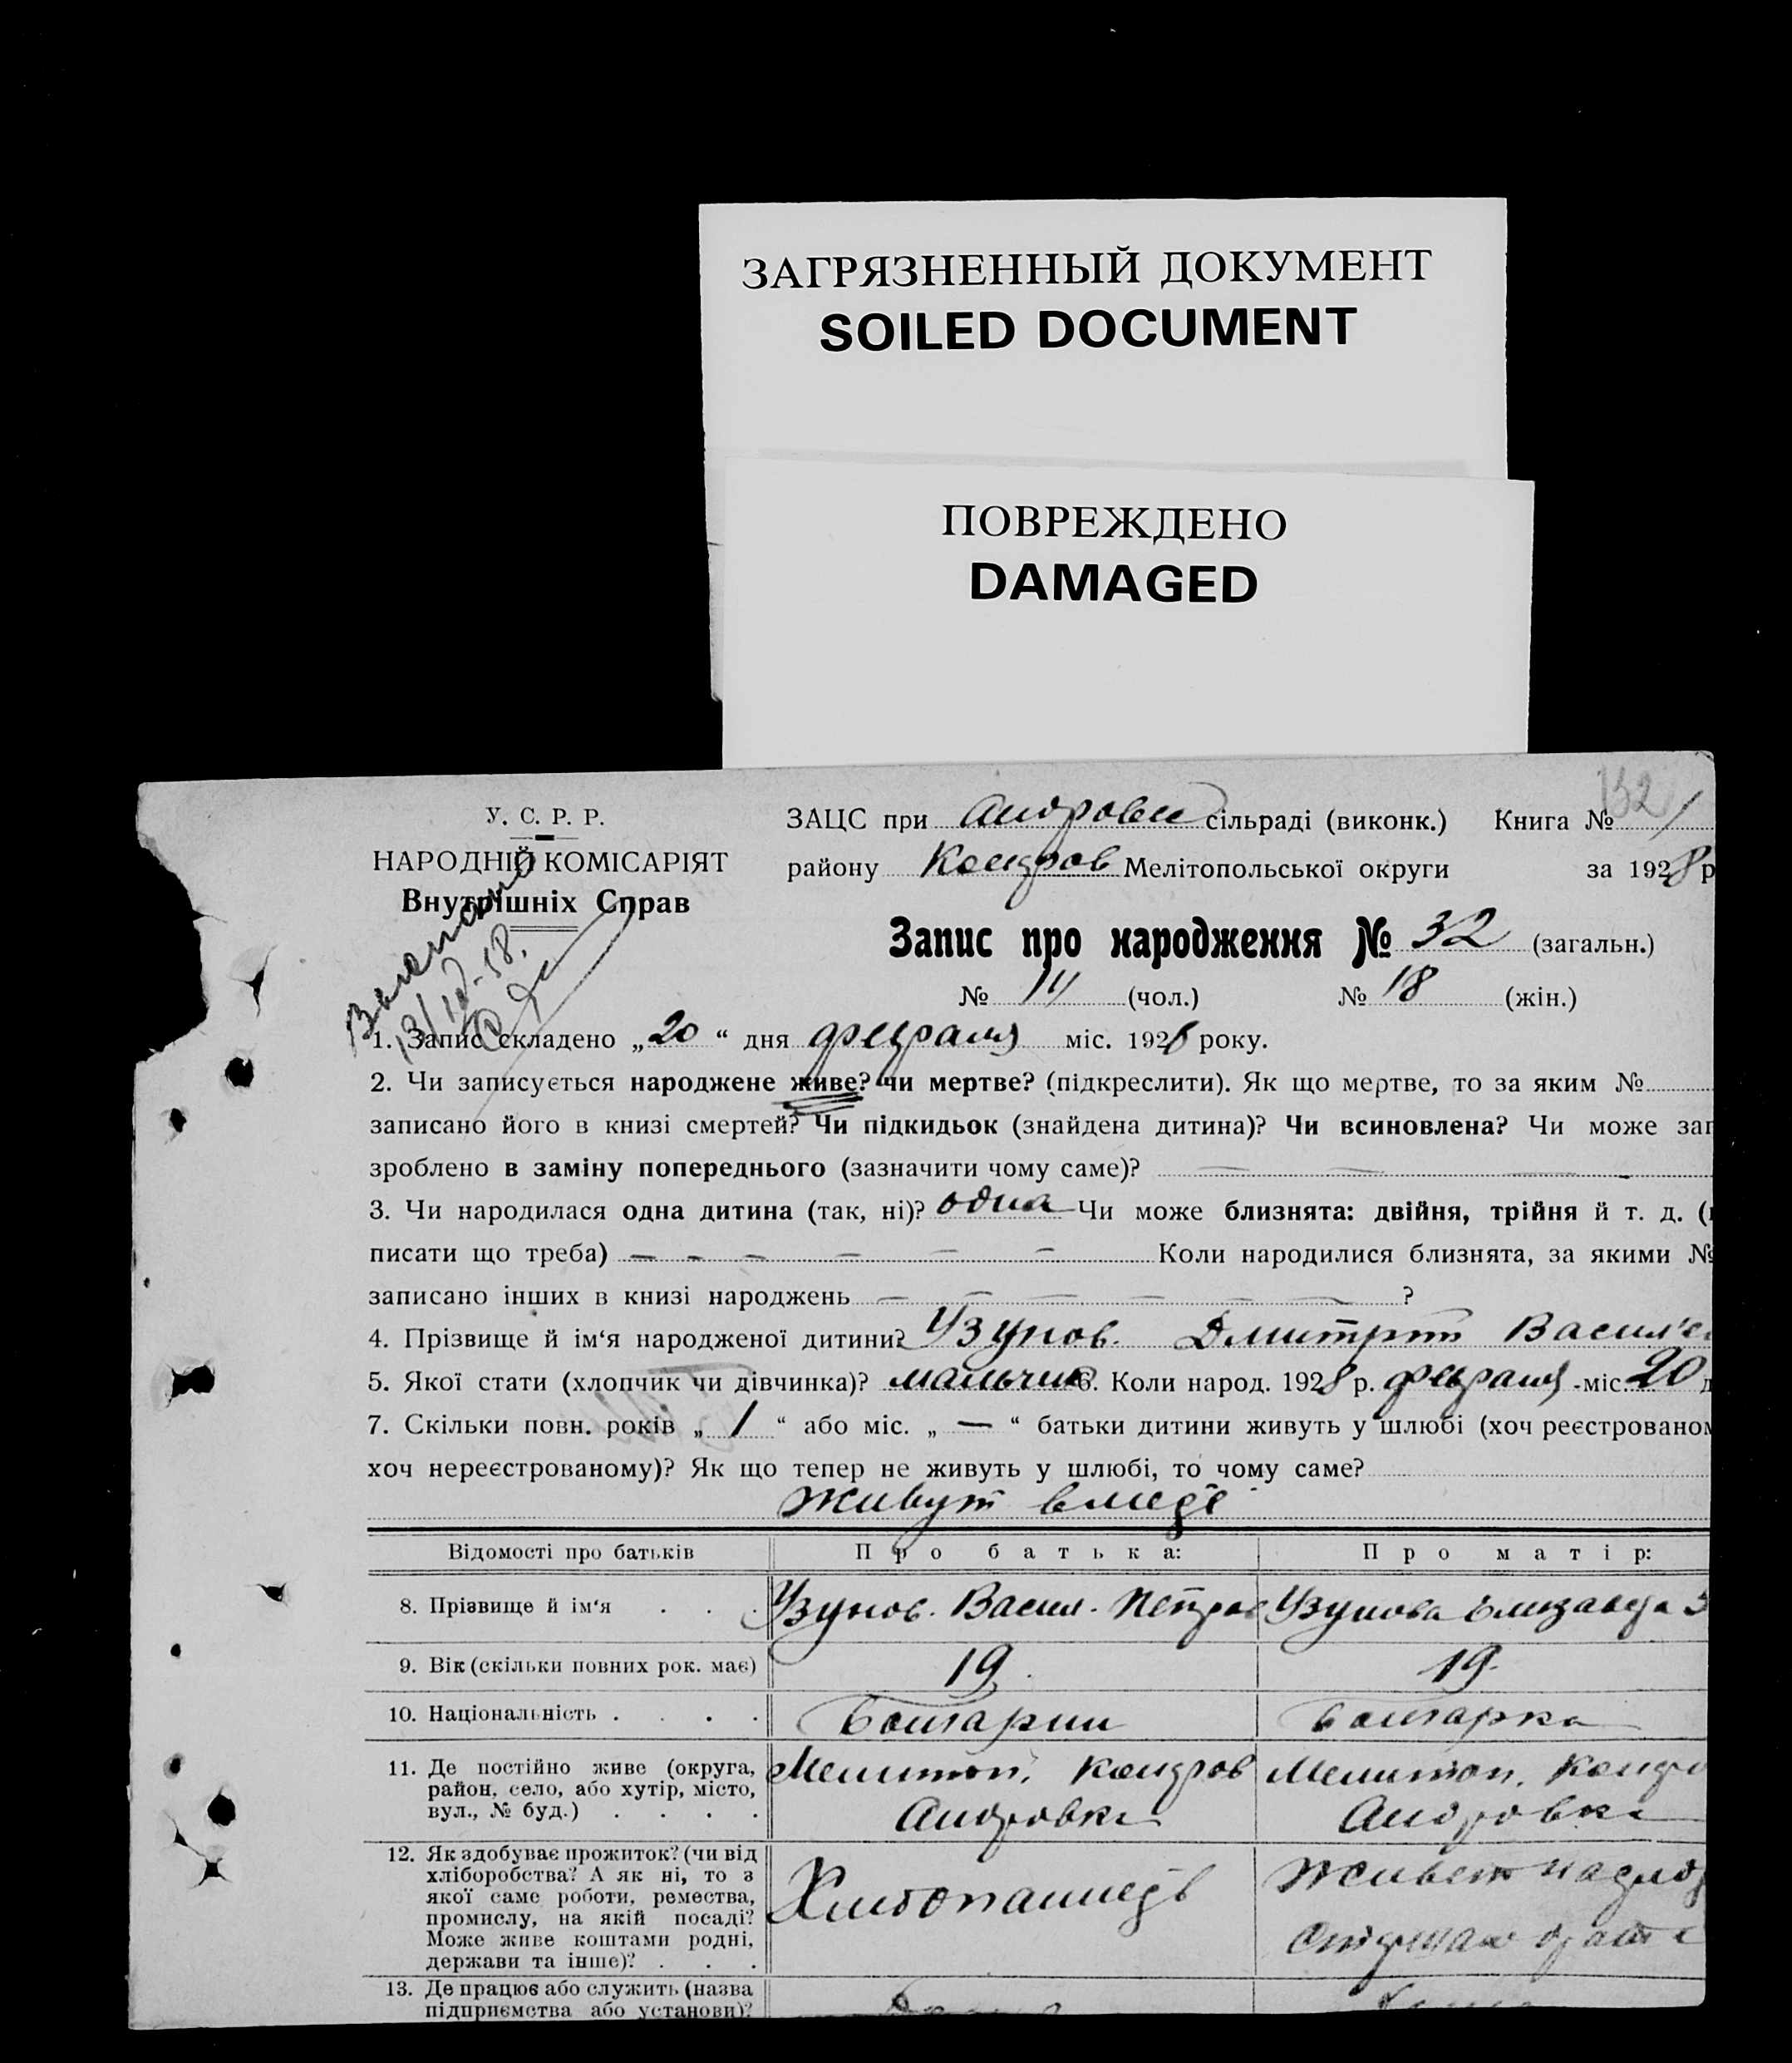 ЗАГРЯЗНЕННЫЙ ДОКУМЕНТ
SOILED DOCUMENT
ПОВРЕЖДЕНО
DAMAGED
132
У. С. Р. Р.
НАРОДНІЙ КОМІСАРІЯТ
Внутрішніх Справ
ЗАЦС при Андровск сільраді (виконк.) Книга № 1
району Коларов Мелітопольської округи за 1928 р
Запис про народження № 32 (загальн.)
№ 14 (чол.) № 18 (жін.)
1. Запис складено „20“ дня февраля міс. 1928 року.
2. Чи записується народжене живе? чи мертве? (підкреслити). Як що мертве, то за яким №
записано його в книзі смертей? Чи підкидьок (знайдена дитина)? Чи всиновлена? Чи може зап
зроблено в заміну попереднього (зазначити чому саме)?
3. Чи народилася одна дитина (так, ні)? одна Чи може близнята: двійня, трійня й т. д. (
писати що треба) — — — — — — Коли народилися близнята, за якими №
записано інших в книзі народжень — — — — — — ?
4. Прізвище й ім‘я народженої дитини? Узунов. Дмитрий Васил'ев
5. Якої стати (хлопчик чи дівчинка)? мальчик 6. Коли народ. 1928 р. февраля міс. 20 д
7. Скільки повн. років „1“ або міс. „—“ батьки дитини живуть у шлюбі (хоч реєстрованом
хоч нереєстрованому)? Як що тепер не живуть у шлюбі, то чому саме?
живут вместе
Відомості про батьків Про батька: Про матір:
8. Прізвище й ім‘я . . . Узунов. Васил. Петров Узунова Елизавета
9. Вік (скільки повних рок. має) 19 19
10. Національність . . . . Болгарин болгарка
11. Де постійно живе (округа,
район, село, або хутір, місто,
вул., № буд.) . . . .
Мелитоп. Коларов Мелитоп. Колар
Андровка Андровка
12. Як здобуває прожиток? (чи від
хліборобства? А як ні, то з
якої саме роботи, ремества,
промислу, на якій посаді?
Може живе коштами родні,
держави та інше)? . . .
Хлебопашец Живет на
13. Де працює або служить (назва
підприємства або установи)?